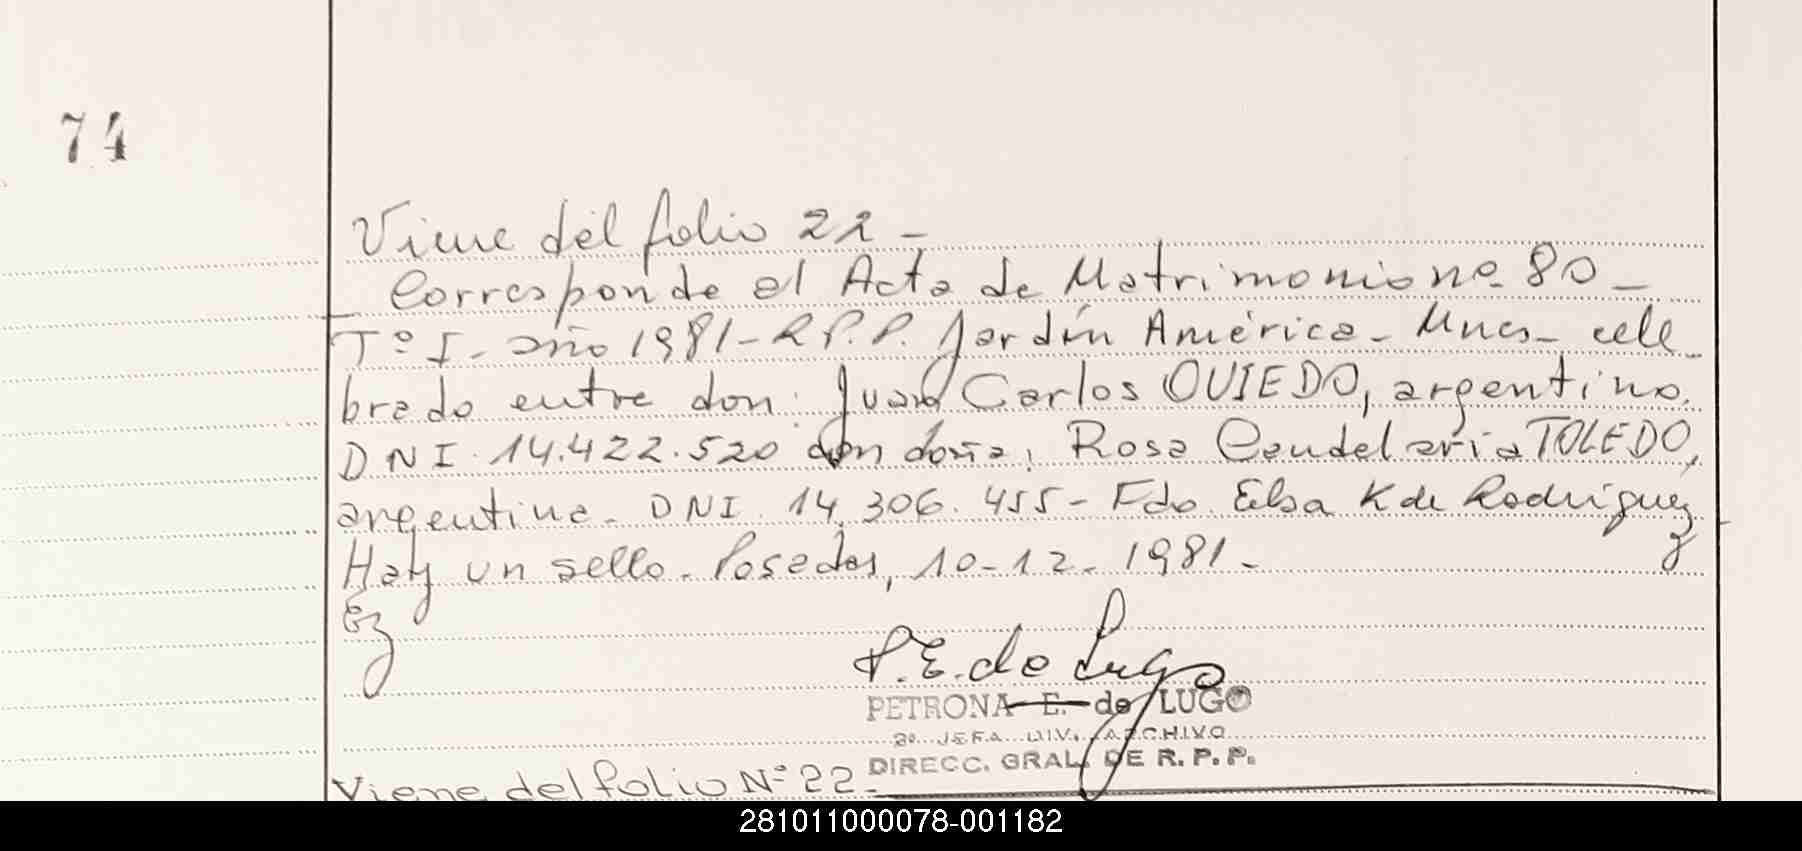 74
Viene del folio 22 -
Corresponde al Acta de Matrimonio no 80 -
Tº I - año 1981 - R.P.P. Jardín América - Mnes - cele
brado entre don: Juan Carlos OVIEDO, argentino.
DNI. 14.422.520 con doña, Rosa Candelaria TOLEDO,
argentina. DNI. 14.306.455 - Fdo. Elsa K de Rodriguez
Hay un sello. Posadas, 10-12-1981.-
P.E. de Lugo
PETRONA E. de LUGO
2º JEFA DIV. ARCHIVO
DIRECC. GRAL. DE R. P. P.
Viene del folio Nº 22.-
281011000078-001182